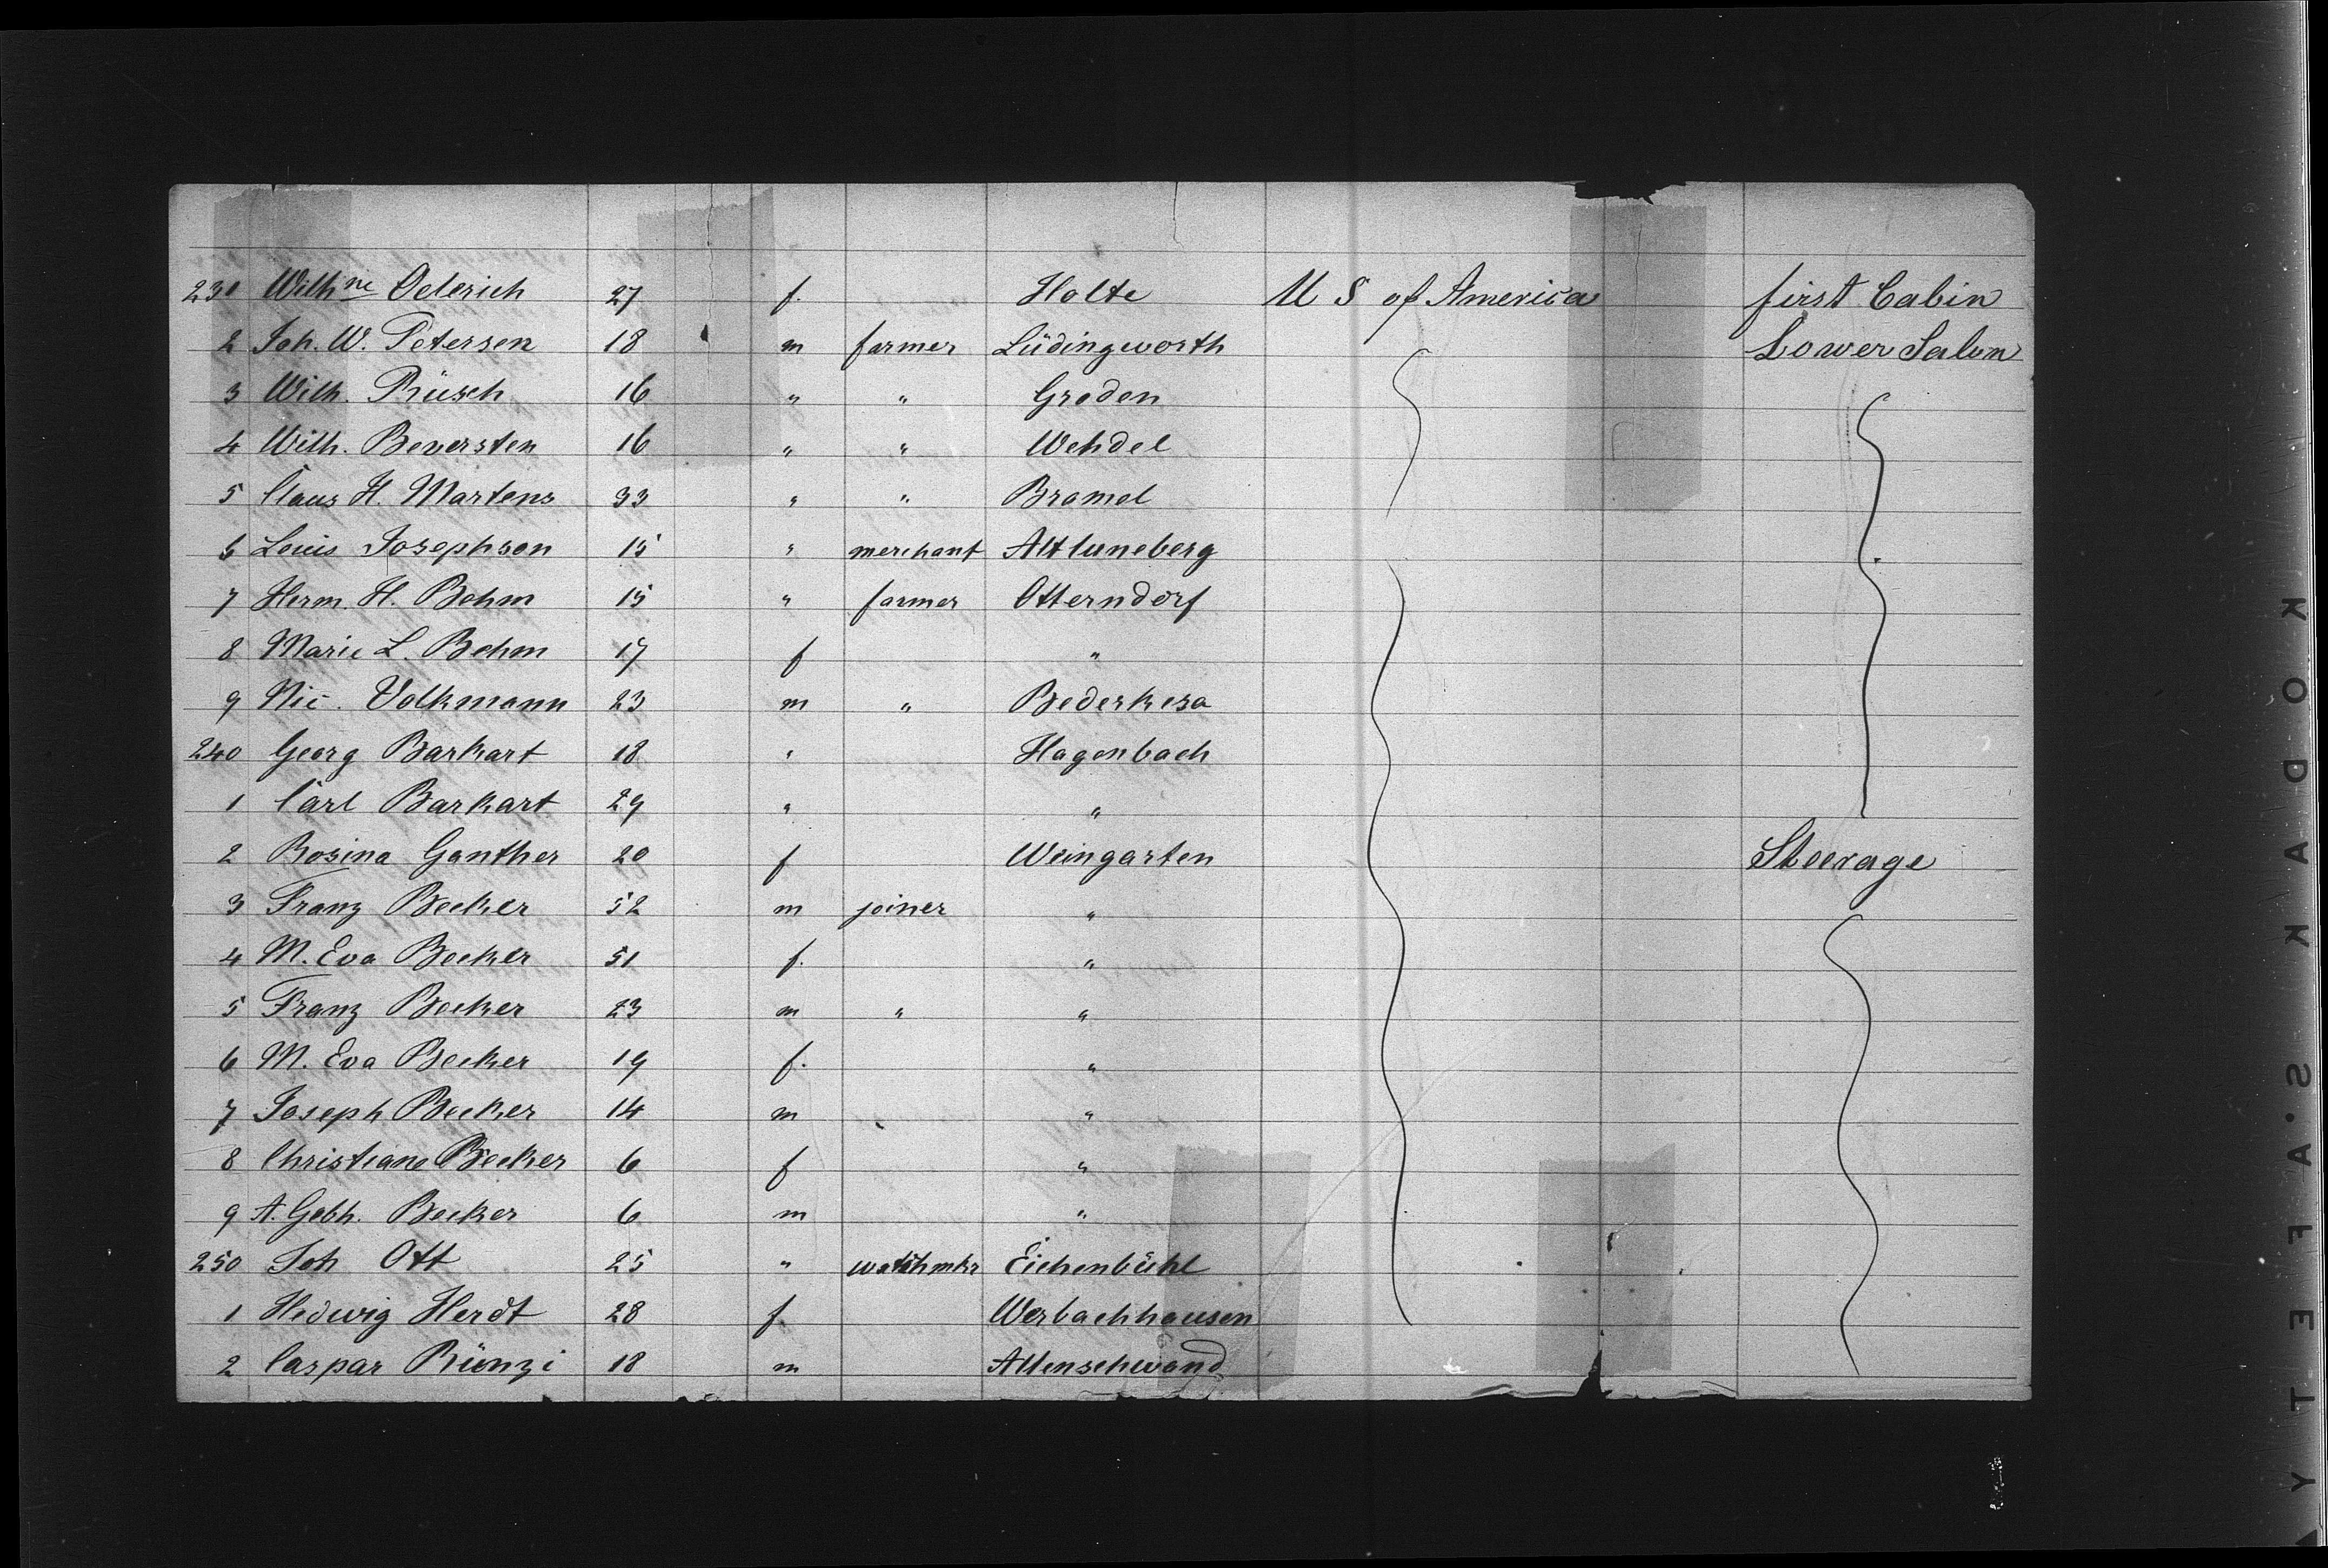 231 Wilhne Oelerich 27 f. Holte U S of America first Cabin
2 Joh. W. Petersen 18 m farmer Lüdingworth Lower Salon
3 Wilh. Rüsch 16 " " Groden
4 Wilh. Beversten 16 " " Wehdel
5 Claus H. Martens 33 " " Bramel
6 Louis Josephson 15 " merchant Altluneberg
7 Herm. H. Behm 15 " farmer Otterndorf
8 Marie L. Behm 17 f "
9 Nic. Volkmann 23 m " Bederkesa
240 Georg Barkart 18 " Hagenbach
1 Carl Barkart 29 " "
2 Rosina Ganther 20 f Weingarten Steerage
3 Franz Becker 52 m joiner "
4 M. Eva Becker 51 f. "
5 Franz Becker 23 m " "
6 M. Eva Becker 19 f. "
7 Joseph Becker 14 m "
8 Christiane Becker 6 f "
9 A. Gebh. Becker 6 m "
250 Joh Ott 25 " watchmkr Eichenbühl
1 Hedwig Herdt 28 f. Werbachhausen
2 Caspar Rünzi 18 m Altenschwand
KODAK SAFETY